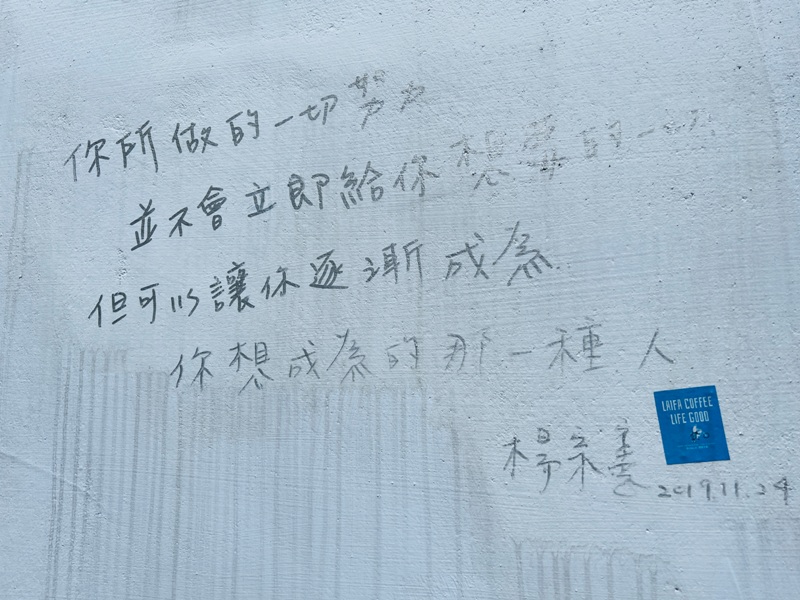 你所做的一切努力
並不會立即給你想要的一切
但可以讓你逐漸成為
你想成為的那一種人
楊宗
LAIFA COFFEE
LIFE GOOD
2019.11.24